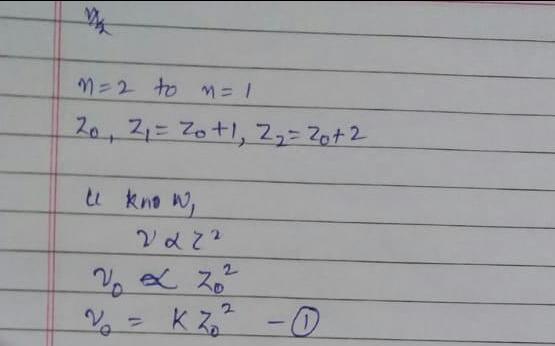 n=2 to n=1
Z₀, Z₁ = Z₀+1, Z₂ = Z₀+2
U know,
ν ∝ Z²
ν₀ ∝ Z₀²
ν₀ = K Z₀² — ①